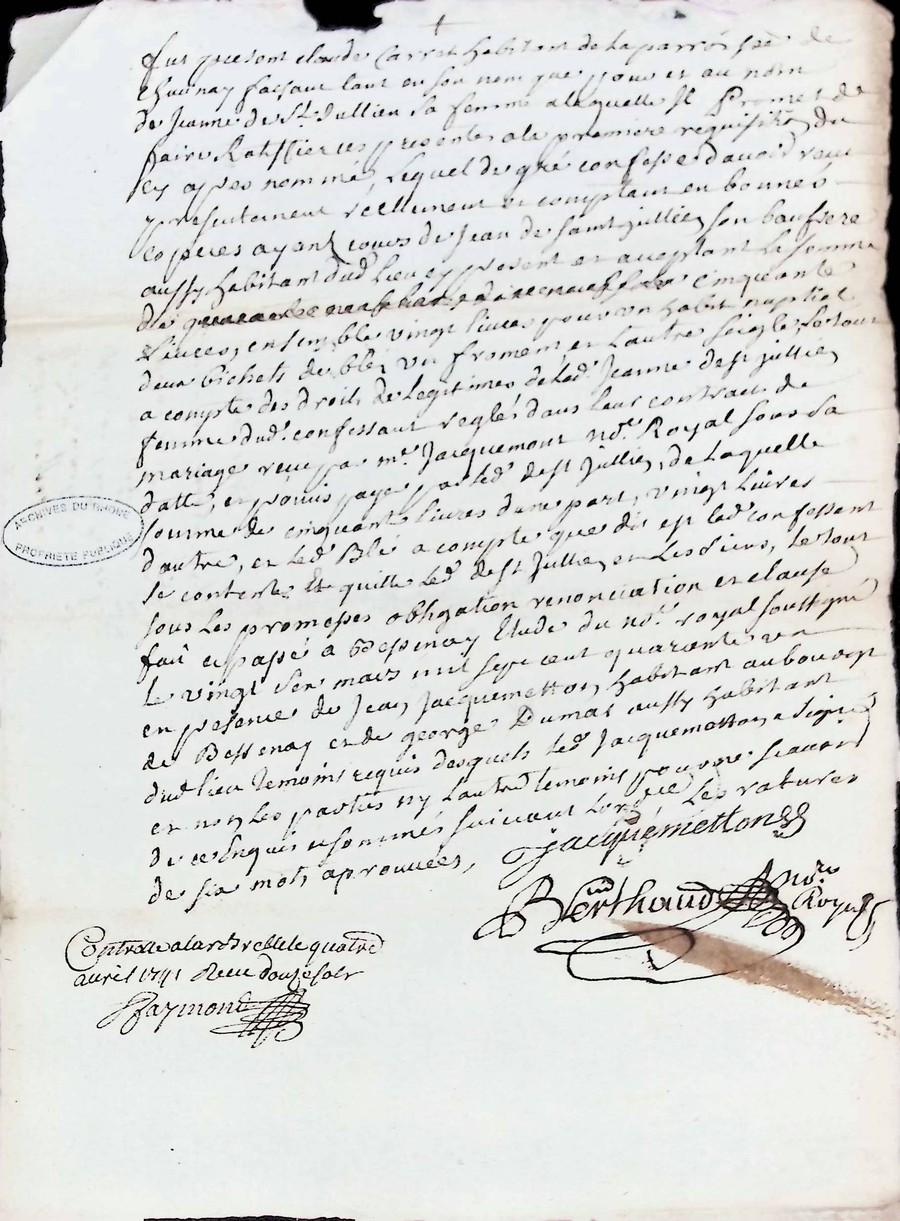 fut present claude Carret habitant de la parroisse de
Chevinay faisant tant en son nom que pour et au nom
de Jeanne de St Jullien sa femme a laquelle Il Promet de
faire Ratiffier ces presentes a la premiere requisition du
cy apres nommé, Lequel de gré confesse d'avoir receu
presentement reellement et comptant en bonnes
especes ayant cours de Jean de saint jullien son beaufrere
aussy habitant dud. lieu cy present et aceptant La somme
de cinquante
Livres, ensemble vingt livres pour un habit nuptial
deux bichets de blé, un froment, et L'autre seigle, Le tout
a compte des droits de Legitimes de lad. Jeanne de st jullien
femme dud. confessant reglés dans leur contract de
mariage reçu par me. Jacquemont no.re Royal sous sa
datte, et promis payer par led. de st Jullien, de Laquelle
somme de cinquante livres d'une part, vingt Livres
d'autre, et led. Blé a compte que dit est led. confessant
se contente Et quitte led. de st Jullien et Les siens, Le tout
sous les promesses obligation renonciation et clause
fait et passé a Bessenay Etude du no.re royal soussigné
Le vingt six mars mil sept cent quarante un
en presence de Jean Jacquemetton, habitant au bourg
de Bessenay et de george Dumas aussy habitant
dud. lieu temoins requis desquels led. Jacquemetton a signé
et non Les parties ny L'autre temoins pour ne sçavoir
de ce Enquis et sommés suivant L'ord.ce, Les ratures
de six mots aprouvées,
Jacquemetton
Berthaud no.re
Royal
Controllé a larbrelle le quatre
avril 1741 Receu douze sols
Raymond
ARCHIVES DU RHONE
PROPRIETE PUBLIQUE